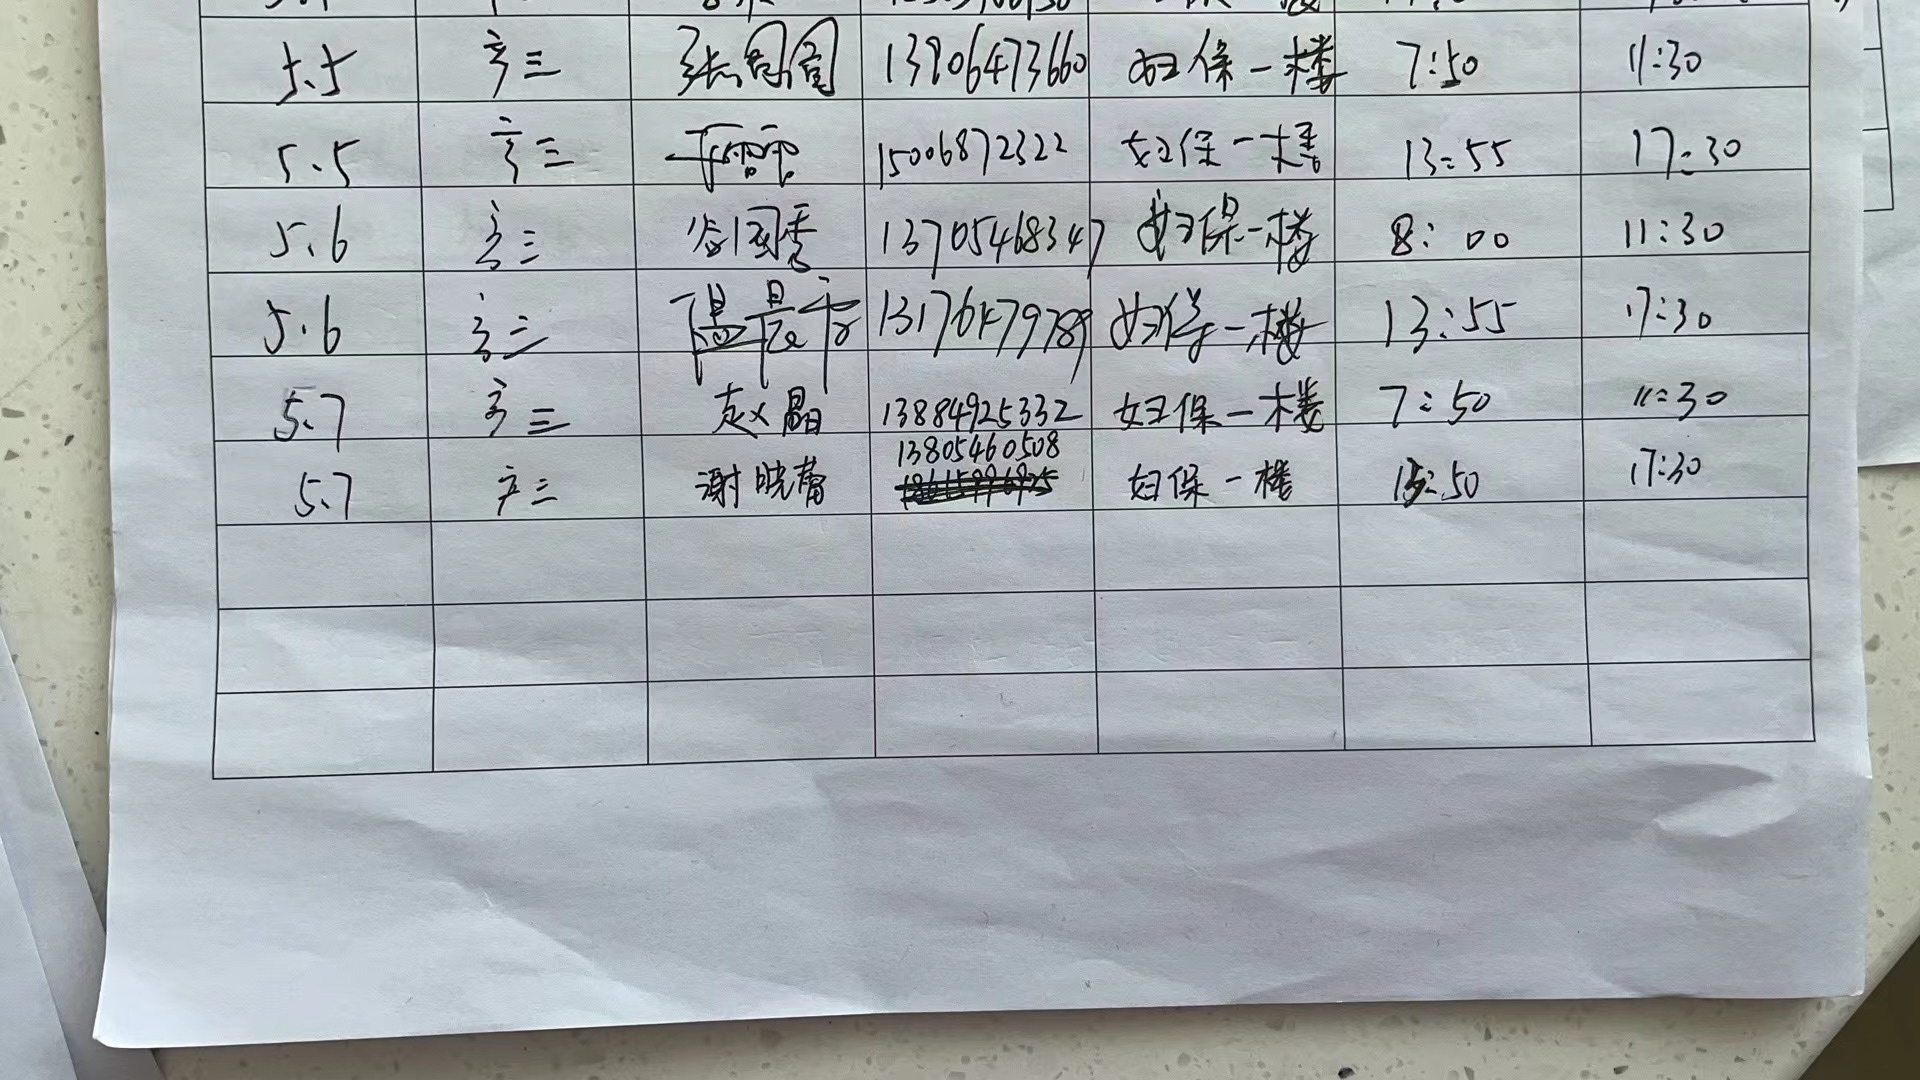 5.5 产三 张园园 13906473660 妇保一楼 7:50 11:30
5.5 产三 15006872322 妇保一楼 13:55 17:30
5.6 产三 谷国秀 13705468347 妇保一楼 8:00 11:30
5.6 产三 13176479789 妇保一楼 13:55 17:30
5.7 产三 赵晶 13884925332 妇保一楼 7:50 11:30
13805460508
5.7 产三 谢晓蕾 妇保一楼 13:50 17:30